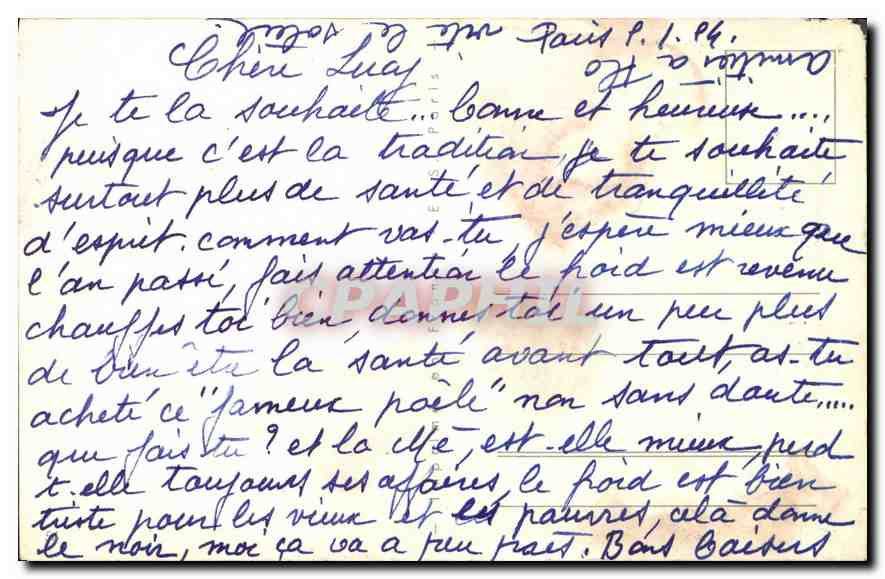 Paris 9.1.84.
Chère Lucy
Je te la souhaite... bonne et heureuse....
puisque c'est la tradition, je te souhaite
surtout plus de santé et de tranquillité
d'esprit. comment vas-tu, j'espère mieux que
l'an passé, fais attention le froid est revenu
chauffes toi bien, donnes toi un peu plus
de bien être la santé avant tout, as-tu
acheté ce "fameux poêle" non sans doute.....
que fais tu? et la Mé, est-elle mieux, perd
t-elle toujours ses affaires, le froid est bien
triste pour les vieux et les pauvres, celà donne
le noir, moi ça va a peu près. Bons baisers
vite le soleil
amitiés a
CPAPHIL